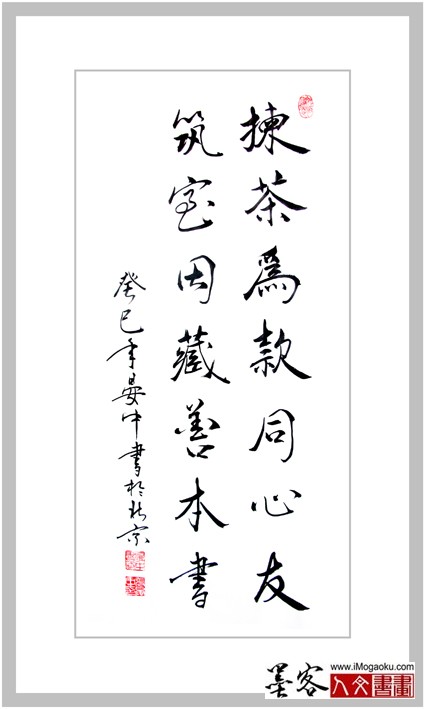 揀茶為款同心友
筑室因藏善本書
癸巳年晏中書於北京
墨客
www.iMogaoku.com
人文書畫